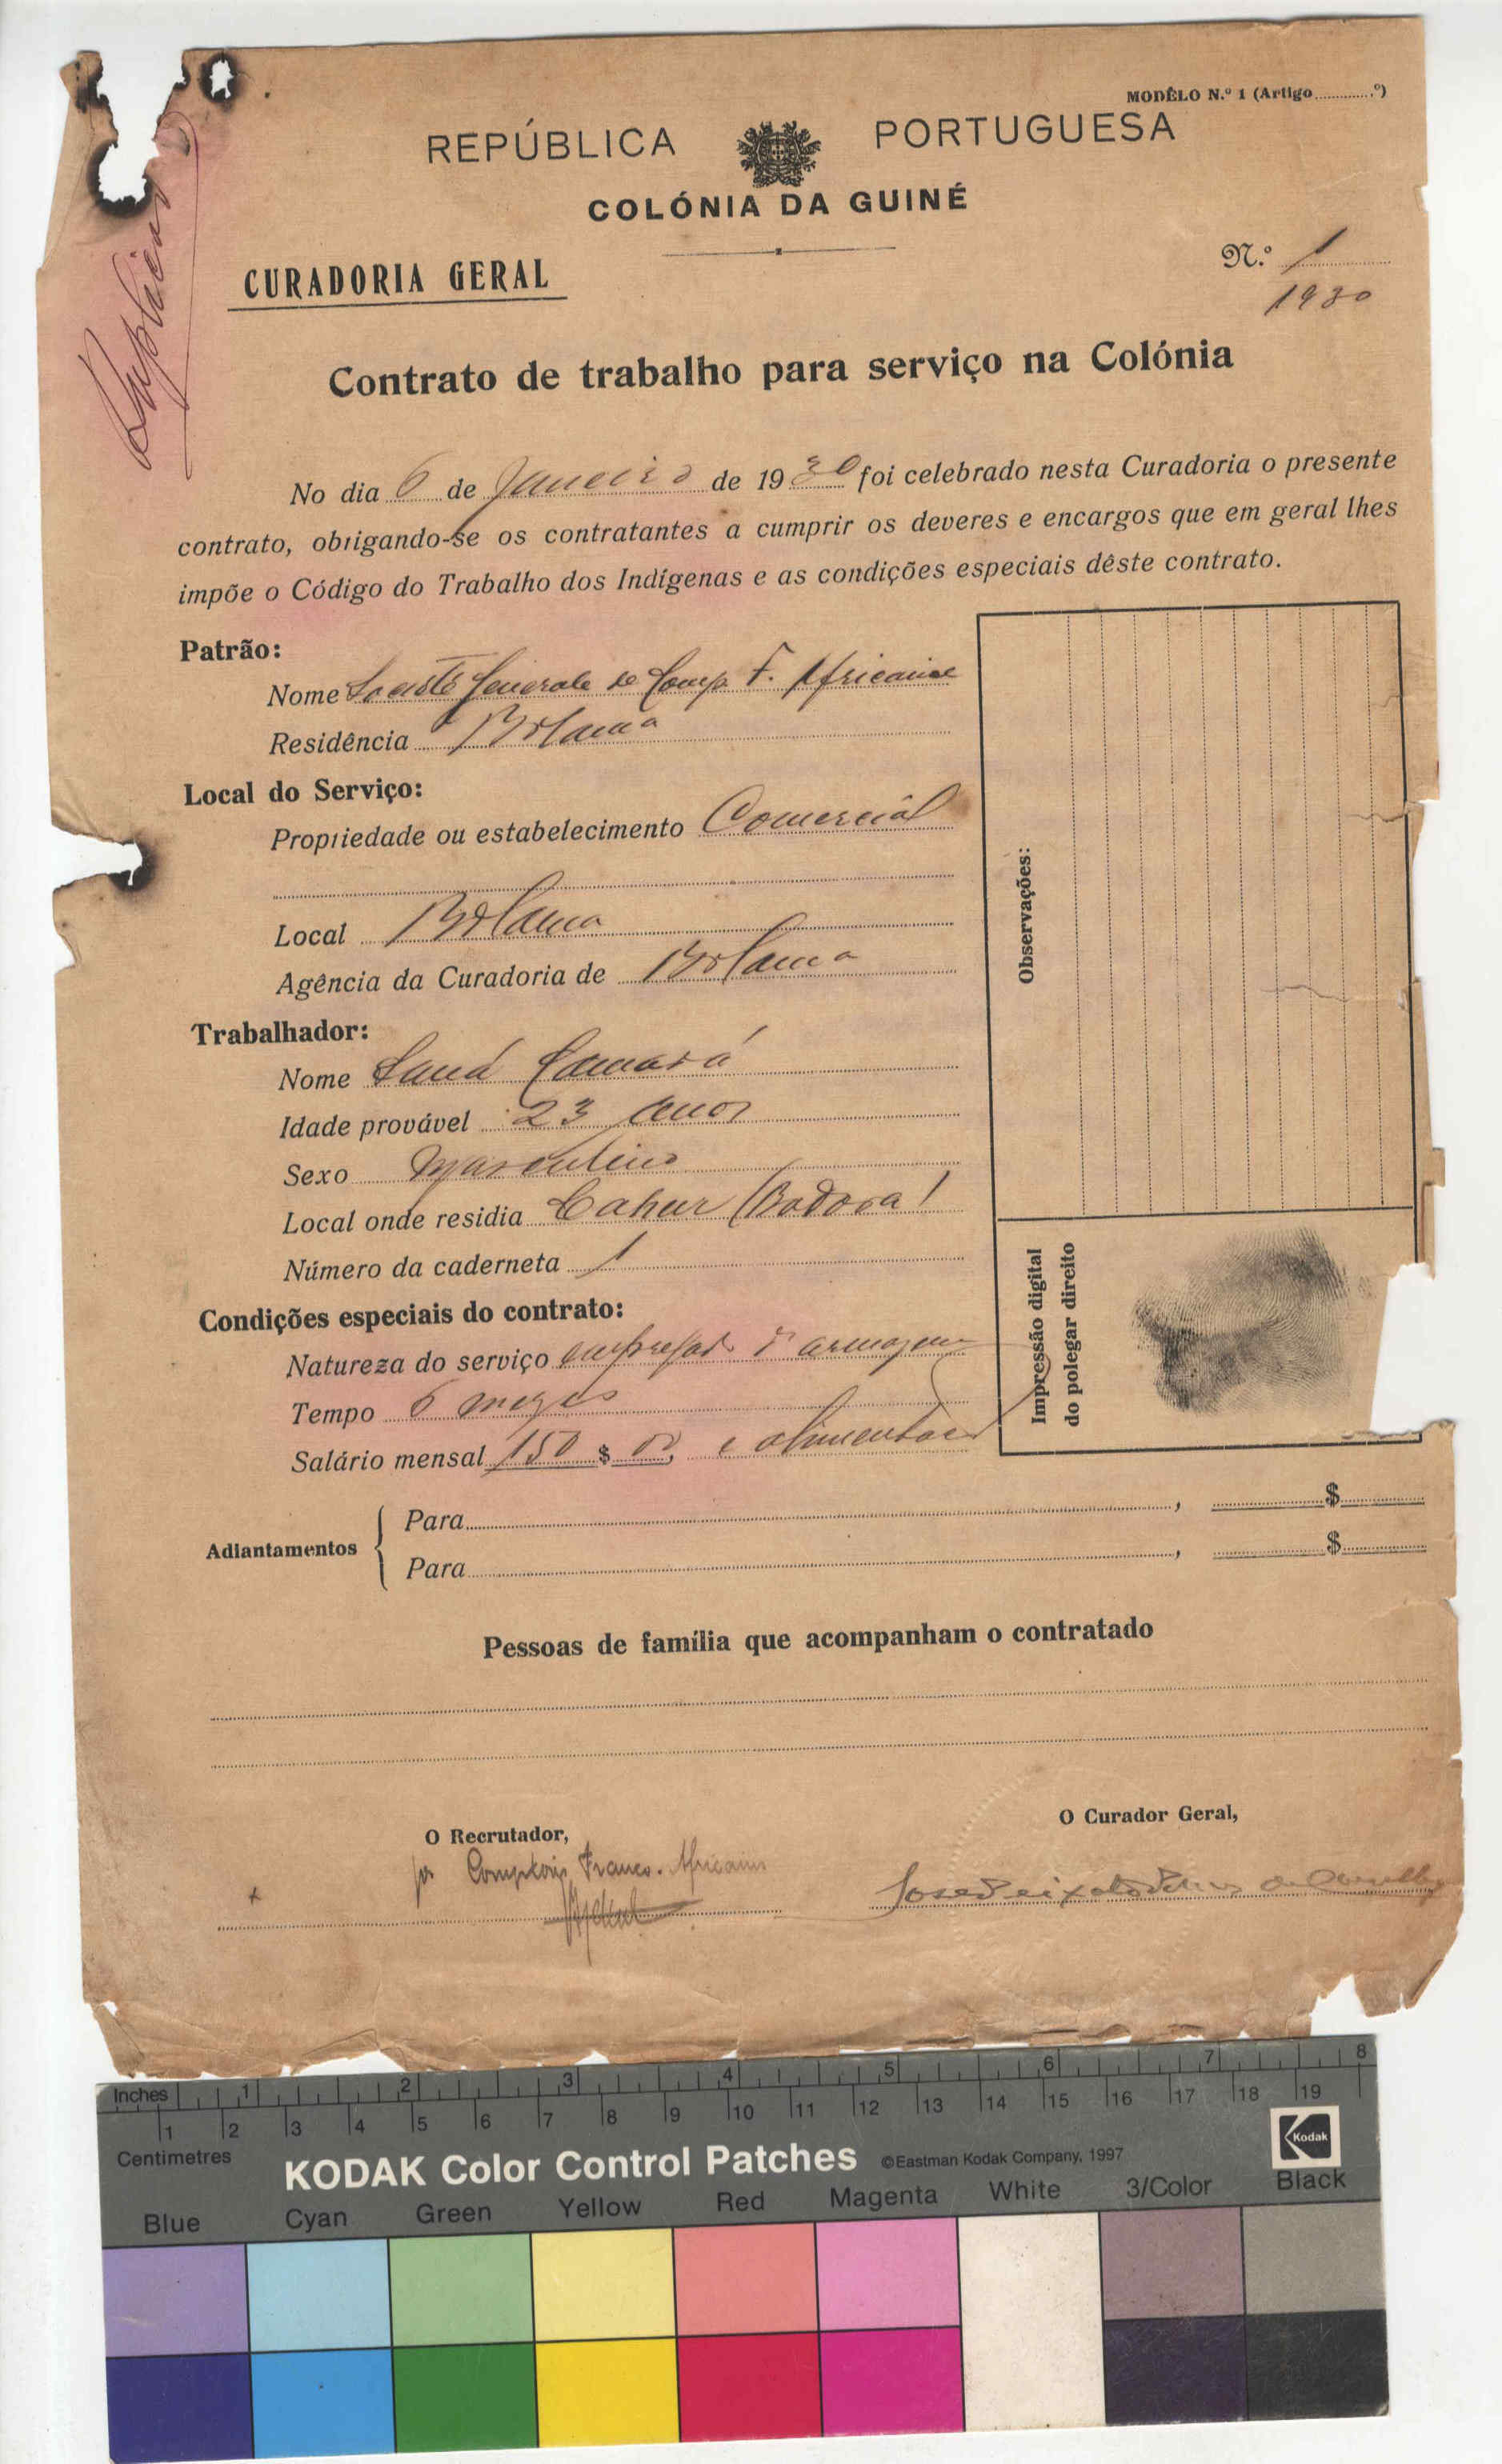 MODÊLO N.º 1 (Artigo ............º)
REPÚBLICA PORTUGUESA
COLÓNIA DA GUINÉ
CURADORIA GERAL
N.º 1
1930
Duplicado
Contrato de trabalho para serviço na Colónia
No dia 6 de Janeiro de 1930 foi celebrado nesta Curadoria o presente
contrato, obrigando-se os contratantes a cumprir os deveres e encargos que em geral lhes
impõe o Código do Trabalho dos Indígenas e as condições especiais dêste contrato.
Patrão:
Nome Société Generale de Comp. F. Africaine
Residência Bolama
Local do Serviço:
Propriedade ou estabelecimento Comercial
Local Bolama
Agência da Curadoria de Bolama
Trabalhador:
Nome Saná Camará
Idade provável 23 anos
Sexo Masculino
Local onde residia Cahur (Badora)
Número da caderneta 1
Condições especiais do contrato:
Natureza do serviço empregado d'armazem
Tempo 6 mezes
Salário mensal 150 $ 00, e alimentação
Observações:
Impressão digital
do polegar direito
Adiantamentos
Para , $
Para , $
Pessoas de família que acompanham o contratado
O Recrutador,
por Comptoir Franco-Africains
O Curador Geral,
José Peixoto de
Inches 1 2 3 4 5 6 7 8
1 2 3 4 5 6 7 8 9 10 11 12 13 14 15 16 17 18 19
Centimetres
KODAK Color Control Patches ©Eastman Kodak Company, 1997 Kodak
Blue Cyan Green Yellow Red Magenta White 3/Color Black